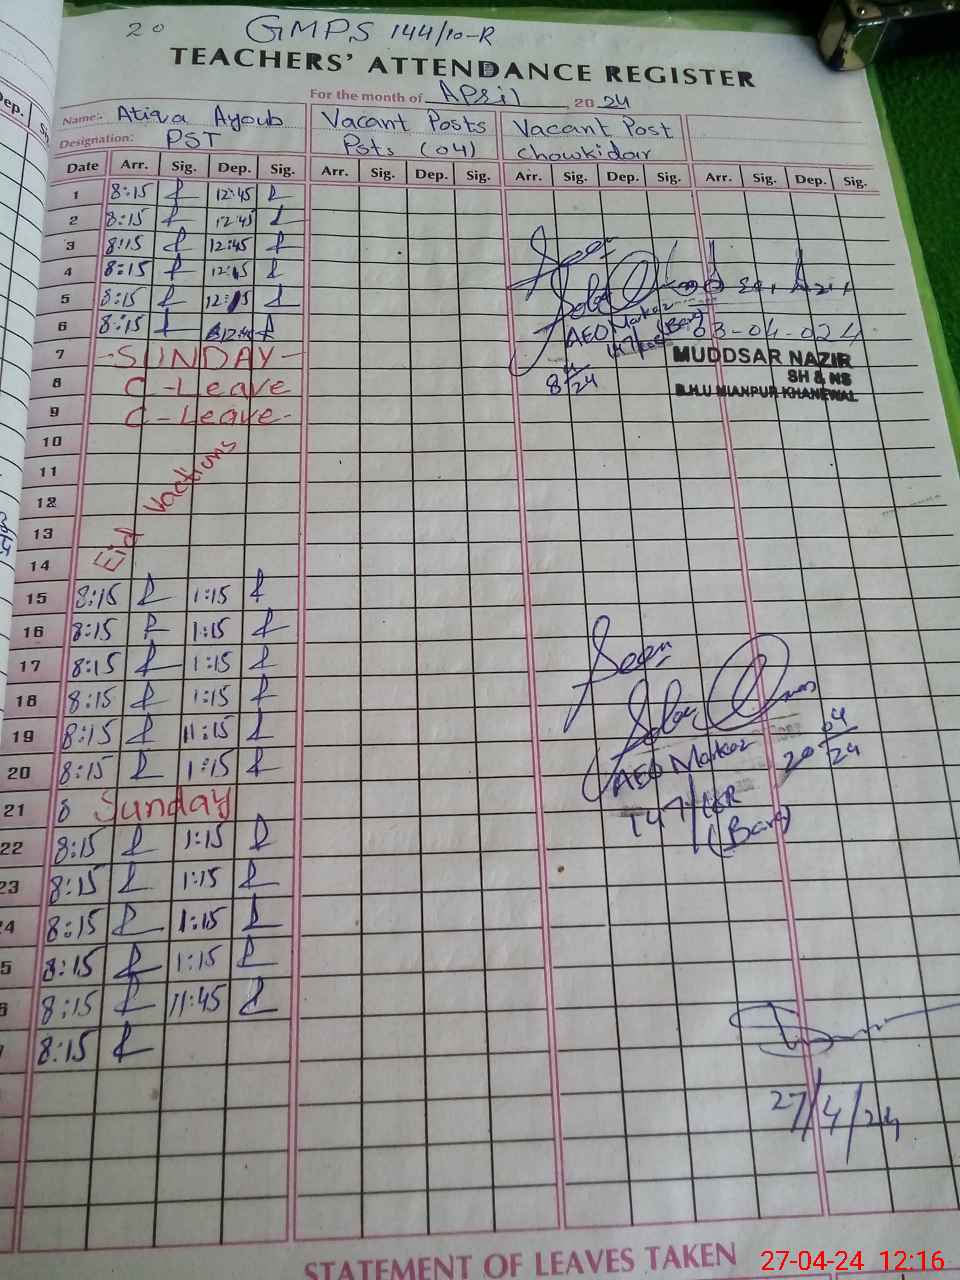 20 GMPS 144/10-R
TEACHERS' ATTENDANCE REGISTER
For the month of April 2024
Name:- Atiqa Ayoub Vacant Posts Vacant Post
Designation: PST Psts (04) Chowkidar
Date Arr. Sig. Dep. Sig. Arr. Sig. Dep. Sig. Arr. Sig. Dep. Sig. Arr. Sig. Dep. Sig.
1 8:15 12:45
2 8:15 12:45
3 8:15 12:45
4 8:15 12:15
5 8:15 12:15
6 8:15 12:40
7 -SUNDAY-
8 C-Leave
9 C-Leave-
10
11
12
13
14
Eid Vactions
15 8:15 1:15
16 8:15 1:15
17 8:15 1:15
18 8:15 1:15
19 8:15 11:15
20 8:15 1:15
21 8 Sunday
22 8:15 1:15
23 8:15 1:15
24 8:15 1:15
5 8:15 1:15
6 8:15 11:45
7 8:15
Seen
AEO Markaz
8/4/24
03-04-024
MUDDSAR NAZIR
SH & NS
B.H.U MIANPUR KHANEWAL
Seen
AEO Markaz
20/04/24
(Bara)
27/4/24
STATEMENT OF LEAVES TAKEN
27-04-24 12:16
ep.